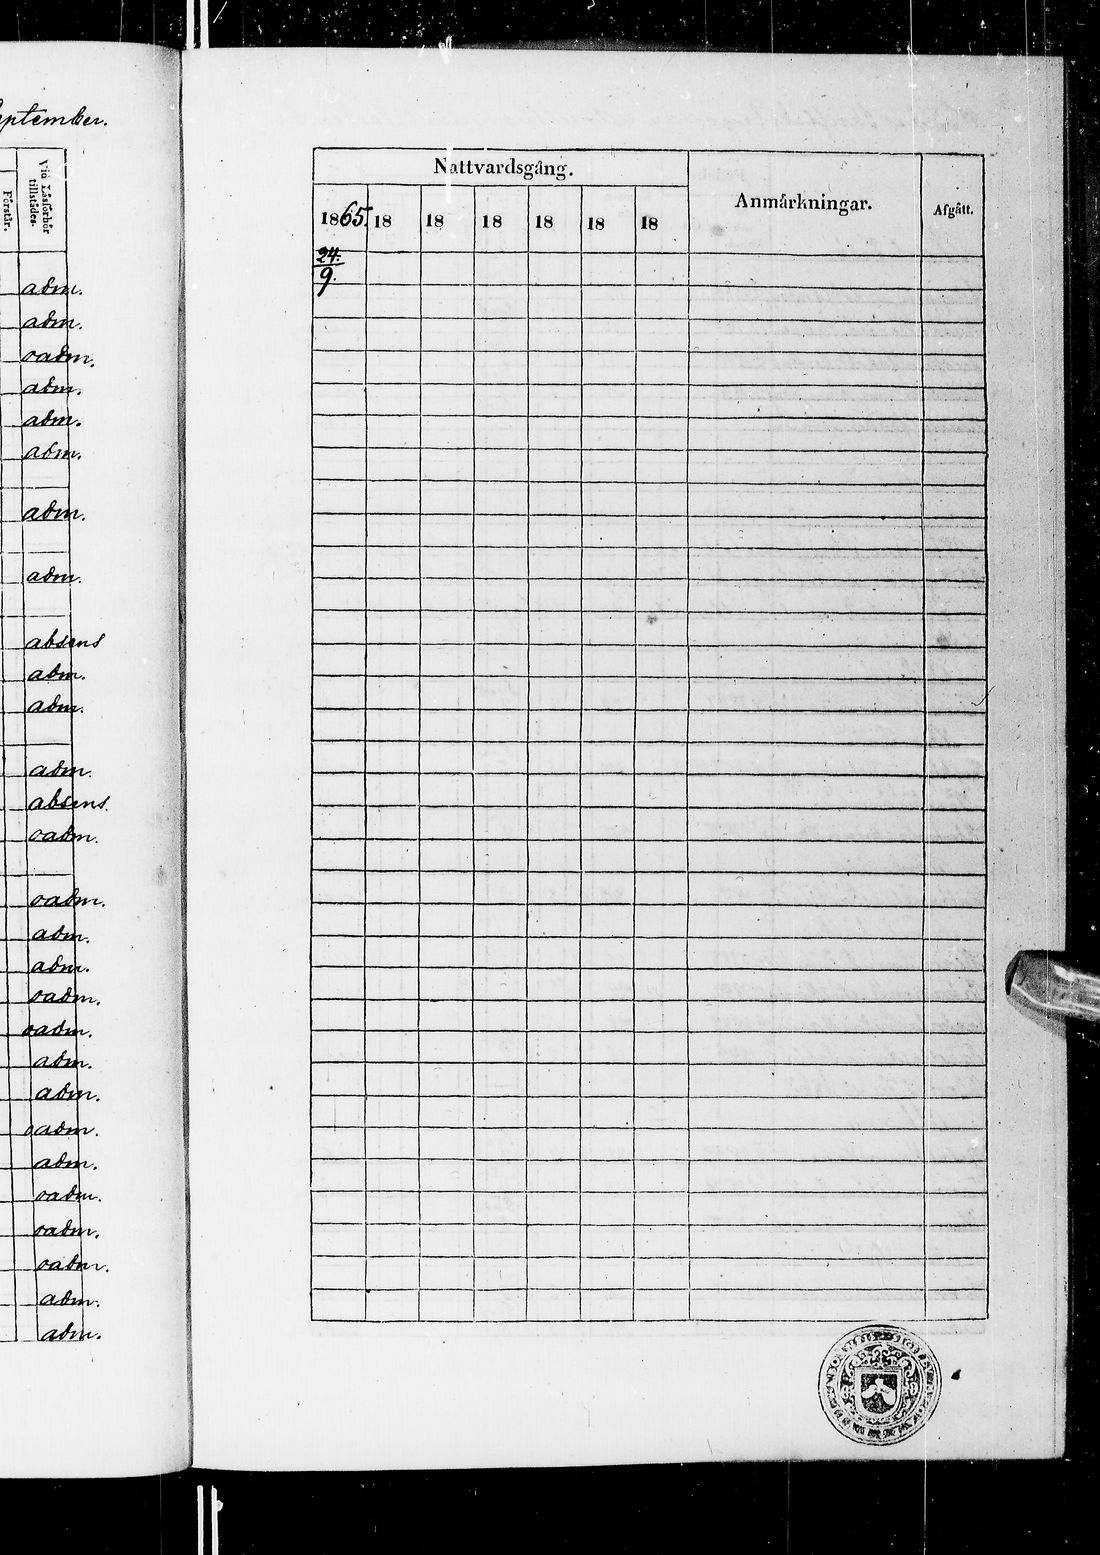 September.
Förstår.
Vid Läsförhör
tillstädes.
adm.
adm.
oadm.
adm.
adm.
adm.
adm.
adm.
absens
adm.
adm.
adm.
absens.
oadm.
oadm.
adm.
adm.
oadm.
oadm.
adm.
adm.
oadm.
adm.
oadm.
oadm.
oadm.
adm.
adm.
Nattvardsgång.
Anmärkningar.
Afgått.
1865. 18 18 18 18 18 18
24.
9.